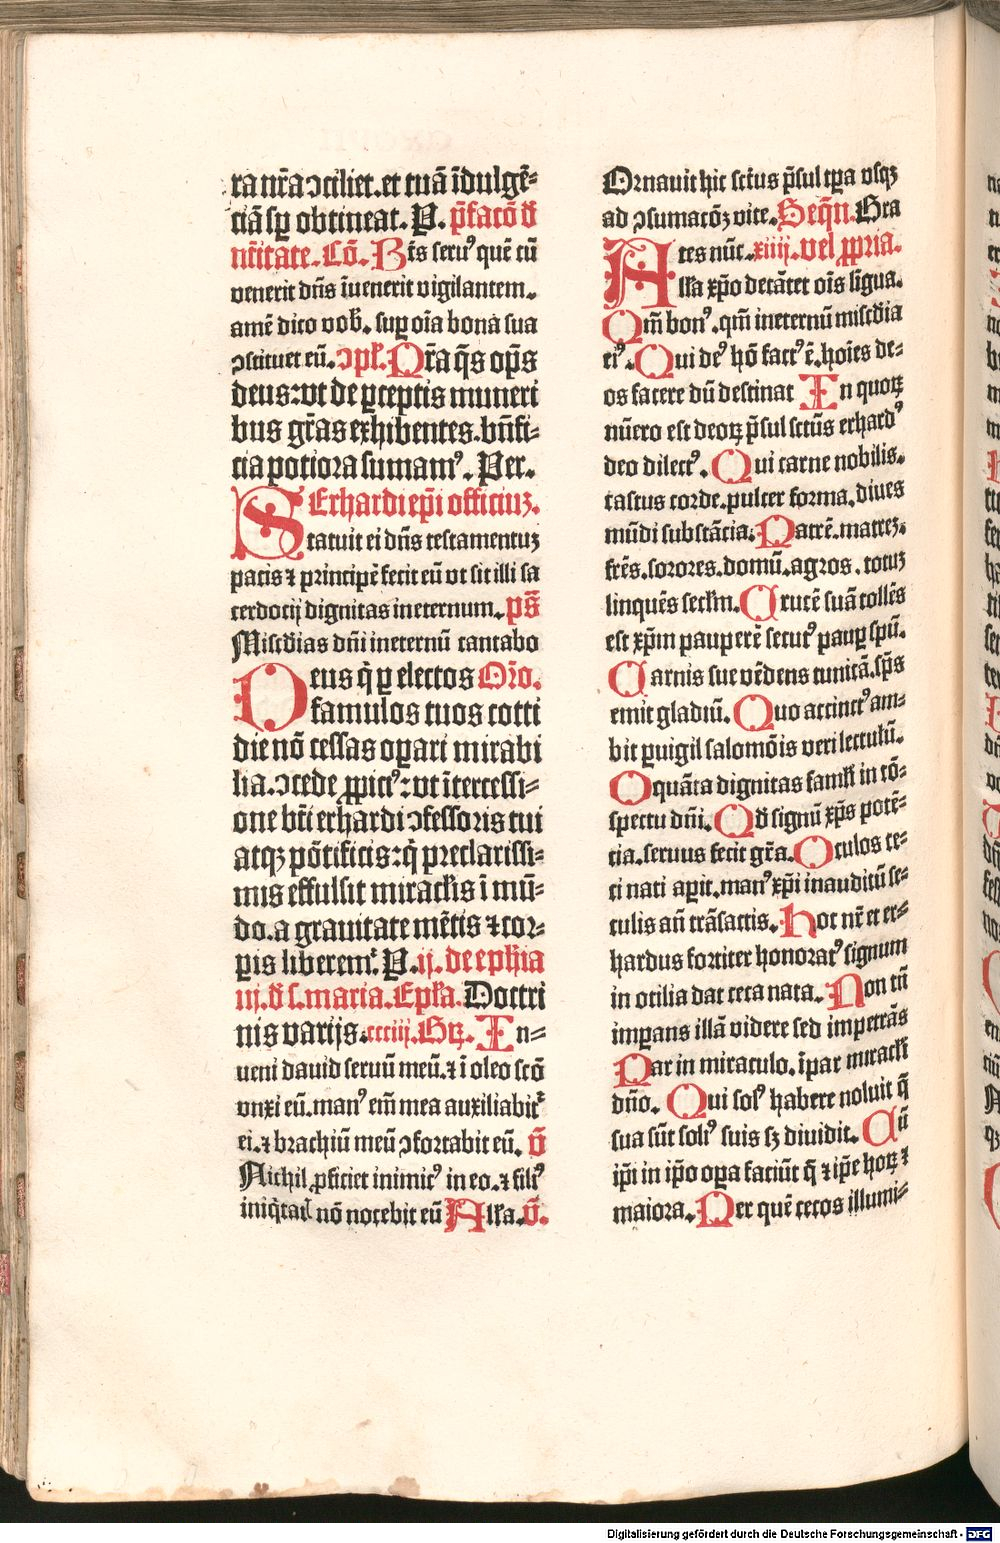 ra nr̄a ↄciliet. et tuā īdulgē⸗
ciā sꝑ obtineat. P. p̄facō d̄
nt̄itate. Cō. Bt̄s seru⁹ quē cū
venerit dn̄s īuenerit vigilantem.
amē dico vob̄. suꝑ oīa bona sua
ↄstituet eū. ↄpl̄. Nr̄a q̄s op̄s
deus: vt de ꝑceptis muneri
bus gr̄as exhibentes. bn̄fi⸗
cia potiora sumam⁹. Per.
Erhardi ep̄i officiuꝫ.
Statuit ei dn̄s testamentuꝫ
pacis ⁊ principē fecit eū vt sit illi sa
cerdocij dignitas in eternum. ps̄
Misc̄dias dn̄i in eternū cantabo
Deus q̄ ꝑ electos Or̄o.
famulos tuos cotti
die nō cessas oꝑari mirabi
lia. ↄcede ꝓpici⁹: vt īt̄ercessi⸗
one bt̄i erhardi ↄfessoris tui
atqꝫ pōtificis: q̄ preclarissi⸗
mis effulsit miracl̄is ī mū⸗
do. a grauitate mētis ⁊ cor⸗
pis liberem̄. P. ij. de eph̄ia
iij. d̄ s. maria. Epl̄a. Doctri
nis varijs. ccciij. Gꝝ. In⸗
ueni dauid seruū meū. ⁊ ī oleo scō
vnxi eū. man⁹ em̄ mea auxiliabit᷑
ei. ⁊ brachiū meū ↄfortabit eū. v̄
Nichil ꝓficiet inimic⁹ in eo. ⁊ fili⁹
iniq̄tat̄ nō nocebit eū All̄a. v̄.
Ornauit hic sct̄us p̄sul tꝑa vsqꝫ
ad ↄsumacōꝫ vite. Seqn̄. Gra
Ates nūc. xiiij. vel ꝓpria.
All̄a xp̄o decātet oīs līgua.
Qm̄ bon⁹. qm̄ in eternū misc̄dia
ei⁹. Qui de⁹ hō fact⁹ ē. hoīes de⸗
os facere dū destinat In quoꝝ
nūero est deoꝝ p̄sul sctūs erhard⁹
deo dilect⁹. Qui carne nobilis.
castus corde. pulcer forma. diues
mūdi substācia. Patrē. matreꝫ.
fr̄es. sorores. domū. agros. totuꝫ
linquēs secl̄m. Crucē suā tollēs
est xp̄m pauperē secut⁹ pauꝑ spū.
Carnis sue vēdens tunicā. sp̄s
emit gladiū. Quo accinct⁹ am⸗
bit ꝑuigil salomōis veri lectulū.
O quāta dignitas famĺi in cō⸗
spectu dn̄i. Qd̄ signū xp̄s potē⸗
cia. seruus fecit gr̄a. Oculos ce⸗
ci nati aꝑit. man⁹ xp̄i inauditū se⸗
culis an̄ trāsactis. Hoc nr̄ et er⸗
hardus fortiter honorat⁹ signum
in otilia dat ceca nata. Non tn̄
imꝑans illā videre sed impetrās
Par in miraculo. īpar miracĺi
dn̄o. Qui sol⁹ habere noluit q̄
sua sūt soli⁹ suis sꝫ diuidit. Cū
ip̄i in ip̄o oꝑa faciūt q̄ ⁊ ip̄e hoꝝ ⁊
maiora. Per quē cecos illumi⸗
Digitalisierung gefördert durch die Deutsche Forschungsgemeinschaft - DFG